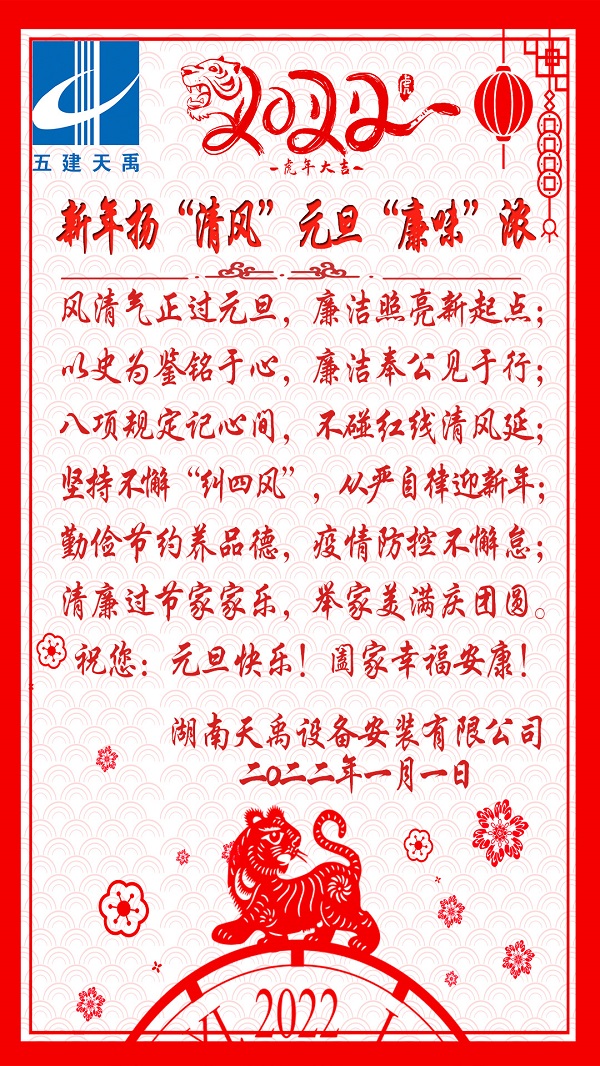 五建天禹
2022
虎
虎年大吉
新年扬“清风”元旦“廉味”浓
风清气正过元旦，廉洁照亮新起点；
以史为鉴铭于心，廉洁奉公见于行；
八项规定记心间，不碰红线清风延；
坚持不懈“纠四风”，从严自律迎新年；
勤俭节约养品德，疫情防控不懈怠；
清廉过节家家乐，举家美满庆团圆。
祝您：元旦快乐！阖家幸福安康！
湖南天禹设备安装有限公司
二〇二二年一月一日
XI 2022 I